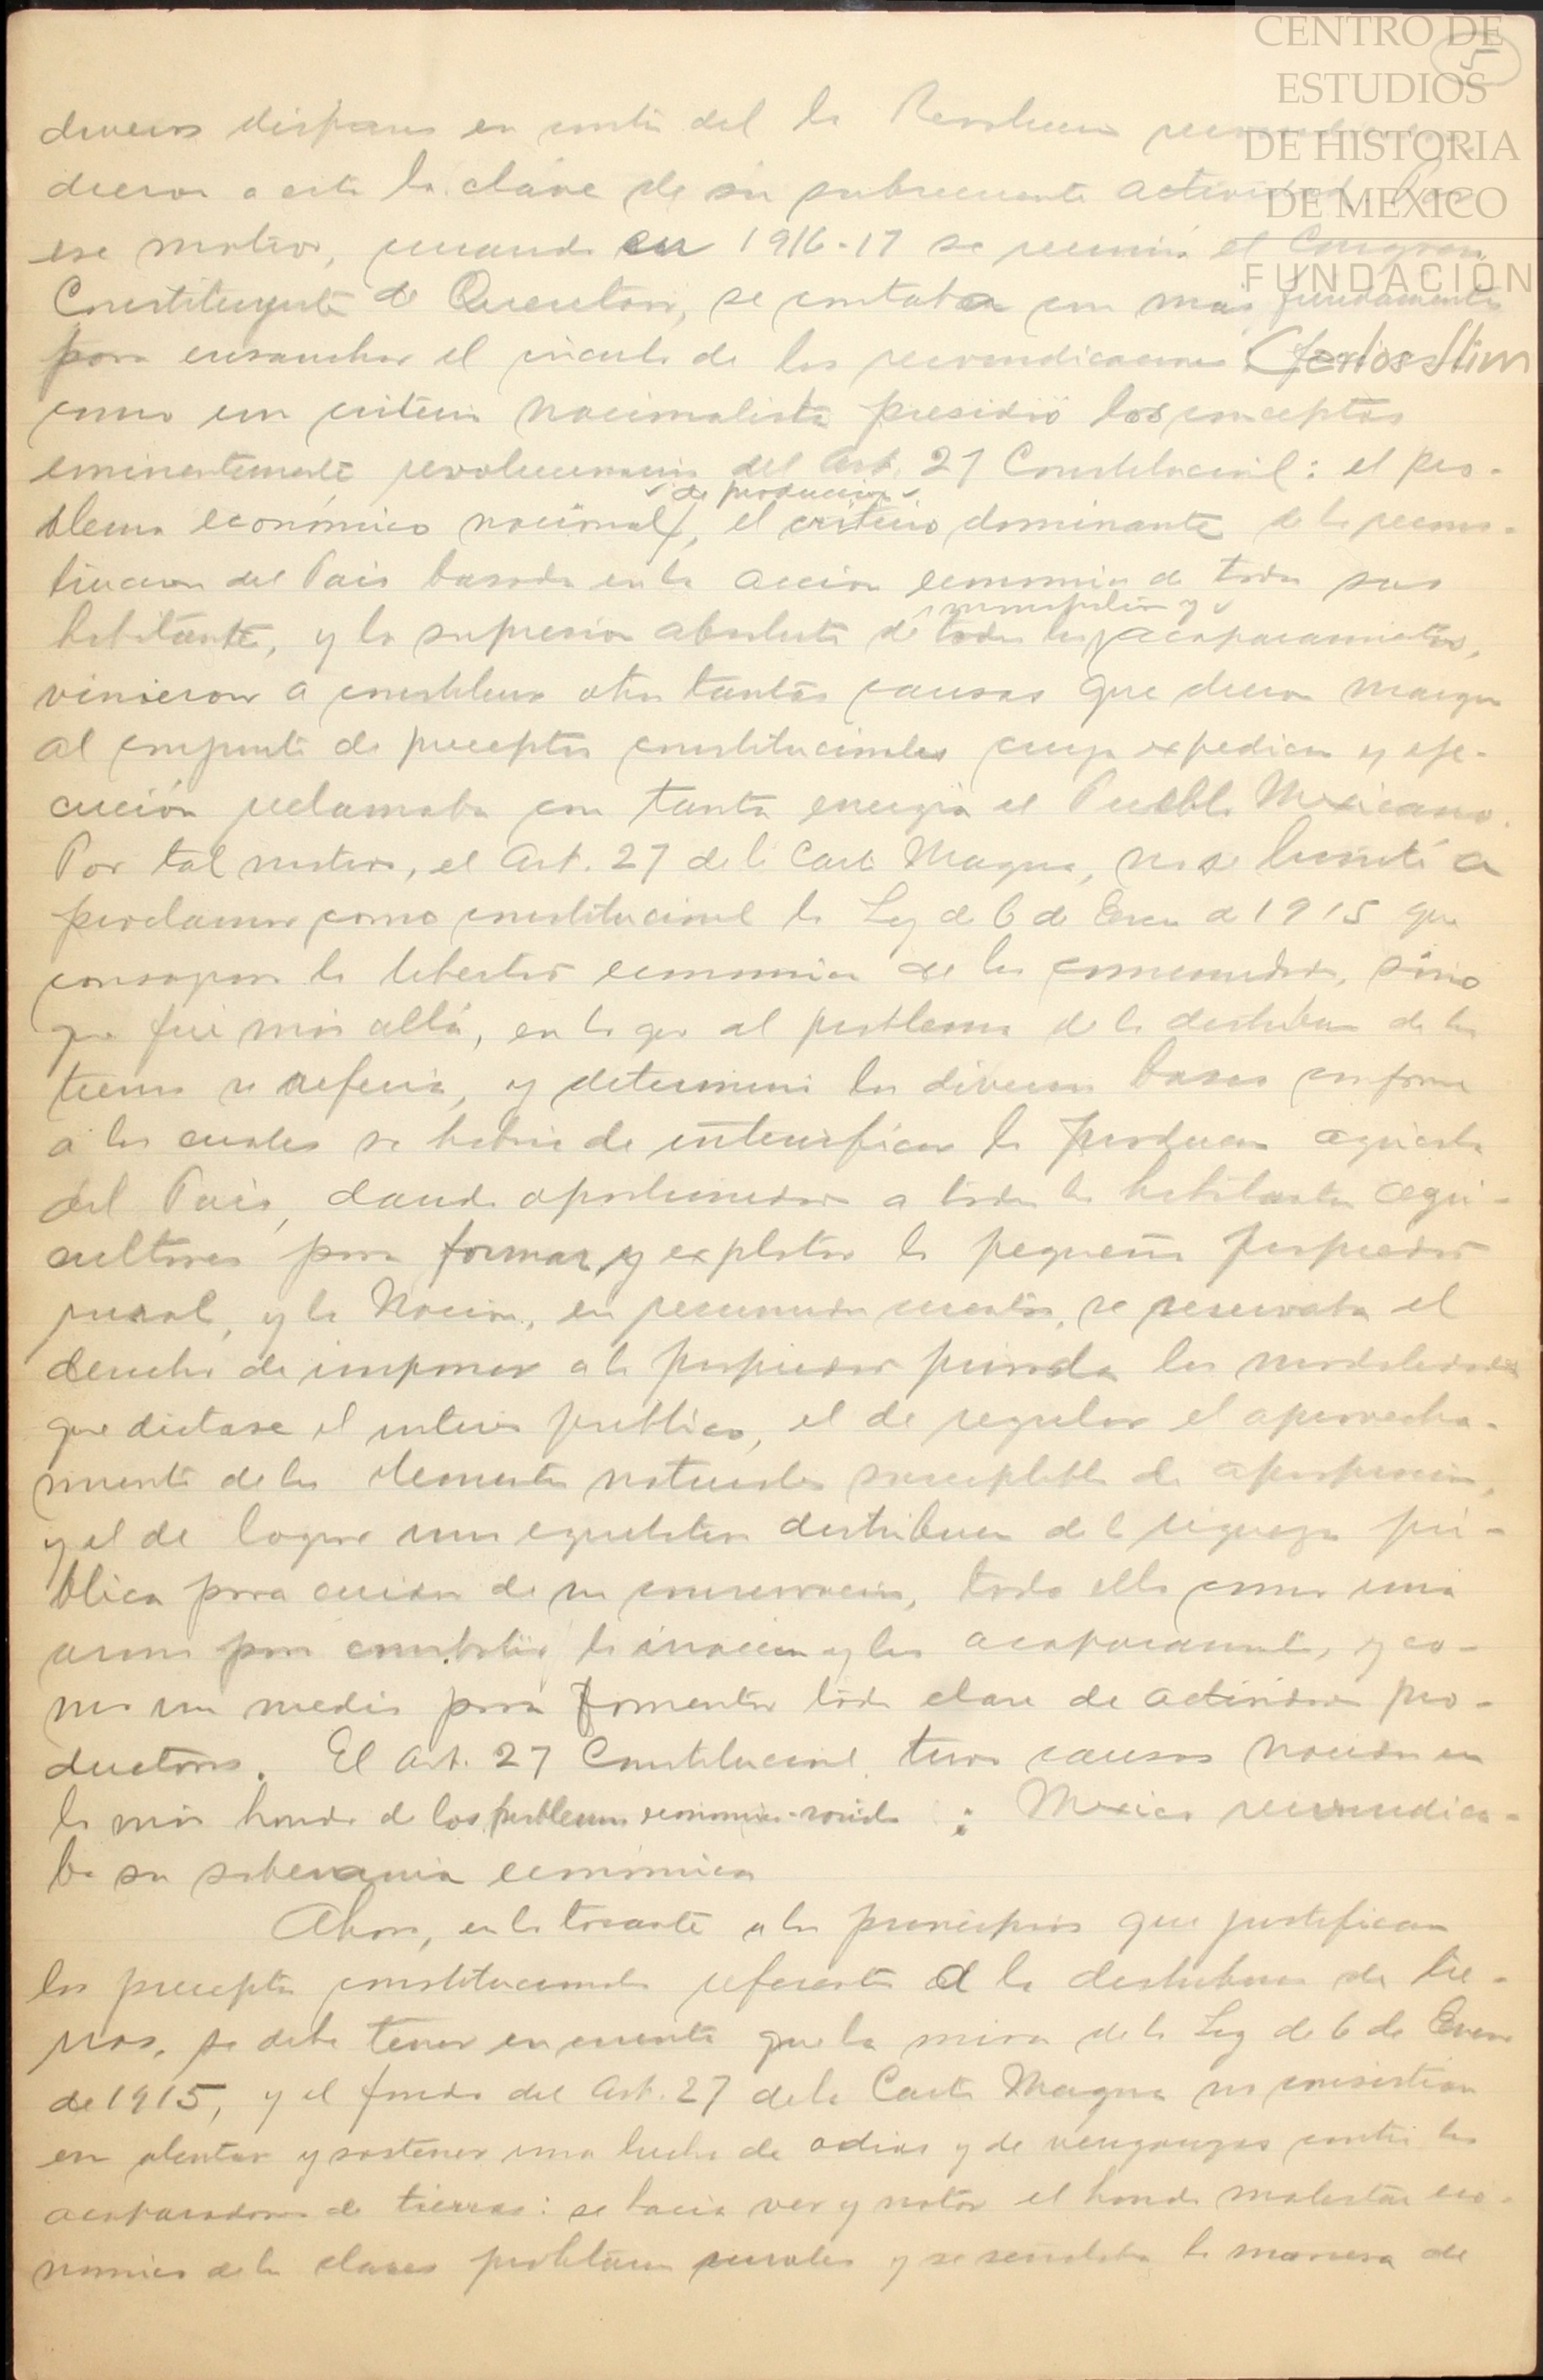 CENTRO DE
ESTUDIOS
DE HISTORIA
DE MEXICO
FUNDACIÓN
Carlos Slim
5
diversos disparos en contra del la Revolucion
dieron a esta la clave de su subsecuente actividad. Por
ese motivo, cuando en 1916-17 se reunió el Congreso
Constituyente de Queretaro, se contaba con mas fundamentos
para ensanchar el circulo de las reivindicaciones
como un criterio nacionalista presidió los conceptos
eminentemente revolucionarios del Art. 27 Constitucional: el pro-
blema económico nacional de produccion, el criterio dominante de la recons-
titucion del Pais basada en la accion economica de todos sus
habitantes, y la supresion absoluta de todos los monopolios y acaparamientos,
vinieron a constituir otras tantas causas que dieron margen
al conjunto de preceptos constitucionales cuya expedicion y eje-
cución reclamaba con tanta energia el Pueblo Mexicano.
Por tal motivo, el Art. 27 de la Carta Magna, no se limitó a
proclamar como constitucional la Ley de 6 de Enero de 1915 que
consagra la libertad economica de las comunidades, sino
que fué más allá, en lo que al problema de la distribucion de las
tierras se referia, y determinó las diversas bases conforme
a las cuales se habria de intensificar la produccion agricola
del Pais, dando oportunidad a todos los habitantes agri-
cultores para formar y explotar la pequeña propiedad
rural, y la Nacion, en resumidas cuentas, se reservaba el
derecho de imponer a la propiedad privada las modalidades
que dictase el interes publico, el de regular el aprovecha-
miento de los elementos naturales susceptibles de apropiacion,
y el de lograr una equitativa distribucion de la riqueza pú-
blica para cuidar de su conservacion, todo ello como una
arma para combatir la inaccion y los acaparamientos, y co-
mo un medio para fomentar toda clase de actividades pro-
ductoras. El Art. 27 Constitucional tuvo causas nacidas en
lo más hondo de los problemas economico-sociales: Mexico reivindica-
ba su soberania económica
Ahora, en lo tocante a los principios que justifican
los preceptos constitucionales referentes a la distribucion de tie-
rras, se debe tener en cuenta que la mira de la Ley de 6 de Enero
de 1915, y el fondo del Art. 27 de la Carta Magna no consistian
en alentar y sostener una lucha de odios y de venganzas contra los
acaparadores de tierras: se hacia ver y notar el hondo malestar eco-
nomico de las clases proletarias rurales y se señalaba la manera de